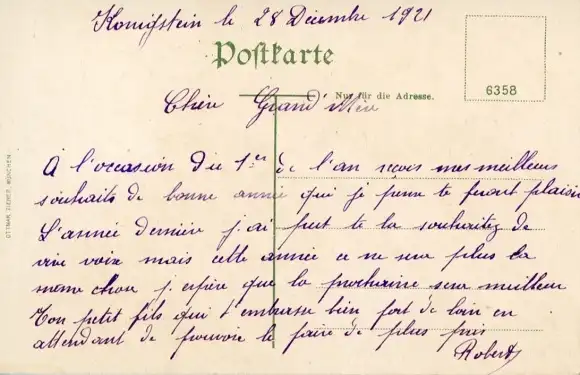 Konigstein le 28 Décembre 1921
Postkarte
Nur für die Adresse.
6358
Chère Grand' Mère
A l'occasion du 1er de l'an reçois mes meilleurs
souhaits de bonne année qui je pense te feront plaisir
L'année dernière j'ai put te la souhaitez de
vive voix mais cette année ce ne sera plus la
meme chose j'espère que la prochaine sera meilleur
Ton petit fils qui t'embrasse bien fort de loin en
attendant de pouvoir le faire de plus près
Robert
OTTMAR ZIEHER, MÜNCHEN